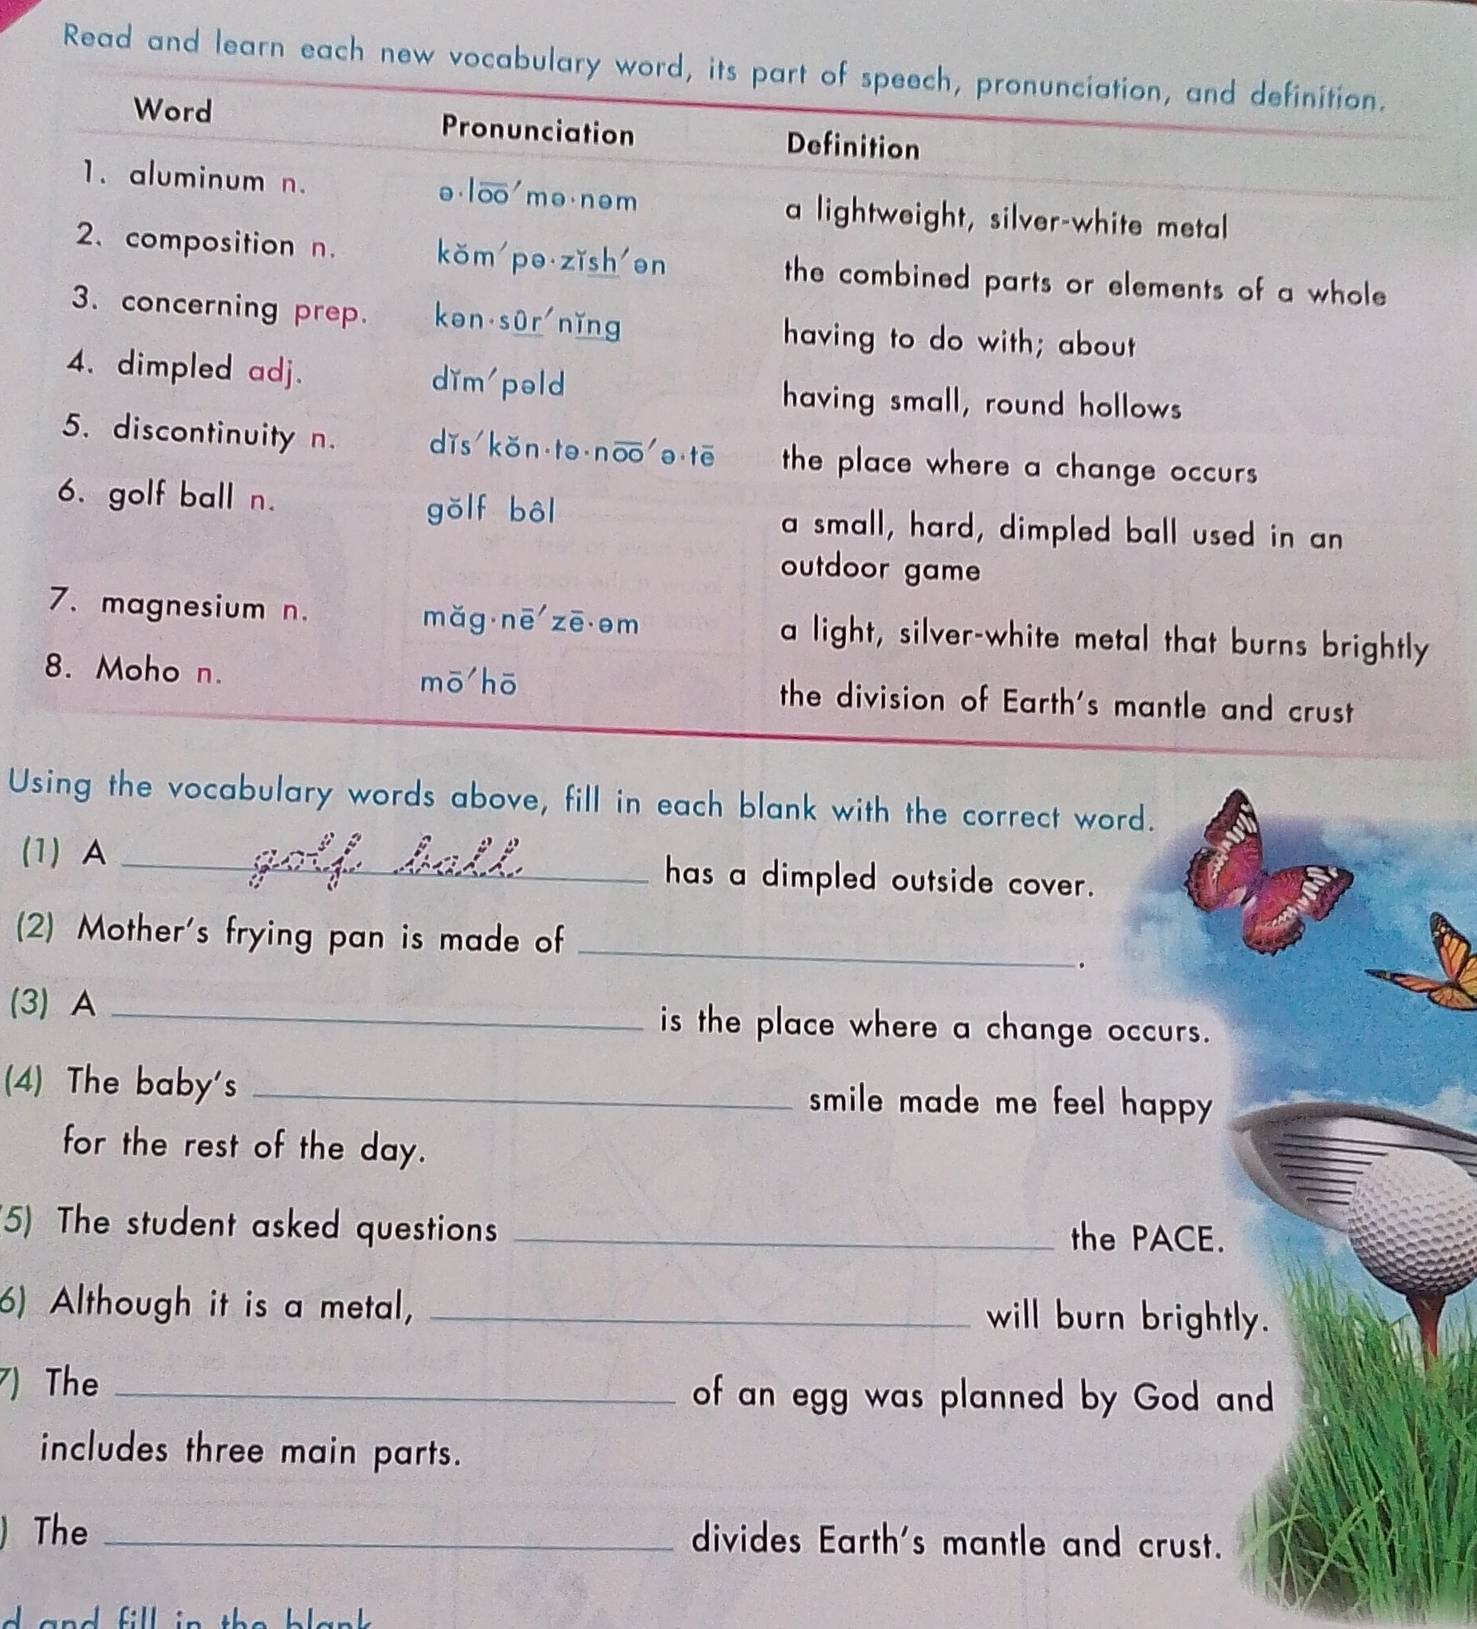 Read and learn each new vocabulary word, its part of speech, pronunciation, and definition.
Word Pronunciation Definition
1. aluminum n. ə·lo͞o′mə·nəm a lightweight, silver-white metal
2. composition n. kŏm′pə·zĭsh′ən the combined parts or elements of a whole
3. concerning prep. kən·sûr′nĭng having to do with; about
4. dimpled adj. dĭm′pəld having small, round hollows
5. discontinuity n. dĭs′kŏn·tə·no͞o′ə·tē the place where a change occurs
6. golf ball n. gŏlf bôl a small, hard, dimpled ball used in an
outdoor game
7. magnesium n. măg·nē′zē·əm a light, silver-white metal that burns brightly
8. Moho n. mō′hō the division of Earth's mantle and crust
Using the vocabulary words above, fill in each blank with the correct word.
(1) A golf ball has a dimpled outside cover.
(2) Mother's frying pan is made of ____.
(3) A ____ is the place where a change occurs.
(4) The baby's ____ smile made me feel happy
for the rest of the day.
5) The student asked questions ____ the PACE.
6) Although it is a metal, ____ will burn brightly.
7) The ____ of an egg was planned by God and
includes three main parts.
) The ____ divides Earth's mantle and crust.
and fill in the blank